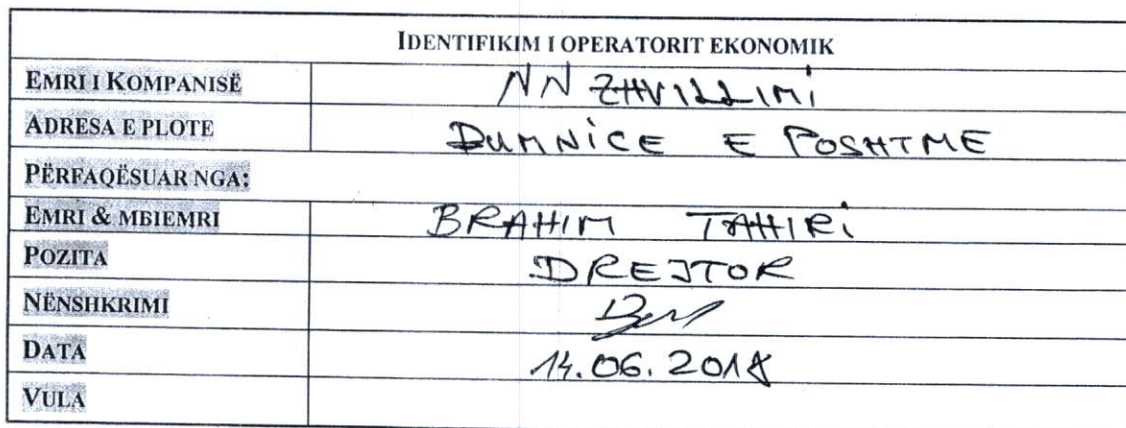 IDENTIFIKIM I OPERATORIT EKONOMIK
EMRI I KOMPANISË NN ZHVILLIMI
ADRESA E PLOTE DUMNICE E POSHTME
PËRFAQËSUAR NGA:
EMRI & MBIEMRI BRAHIM TAHIRI
POZITA DREJTOR
NËNSHKRIMI
DATA 14.06.2018
VULA